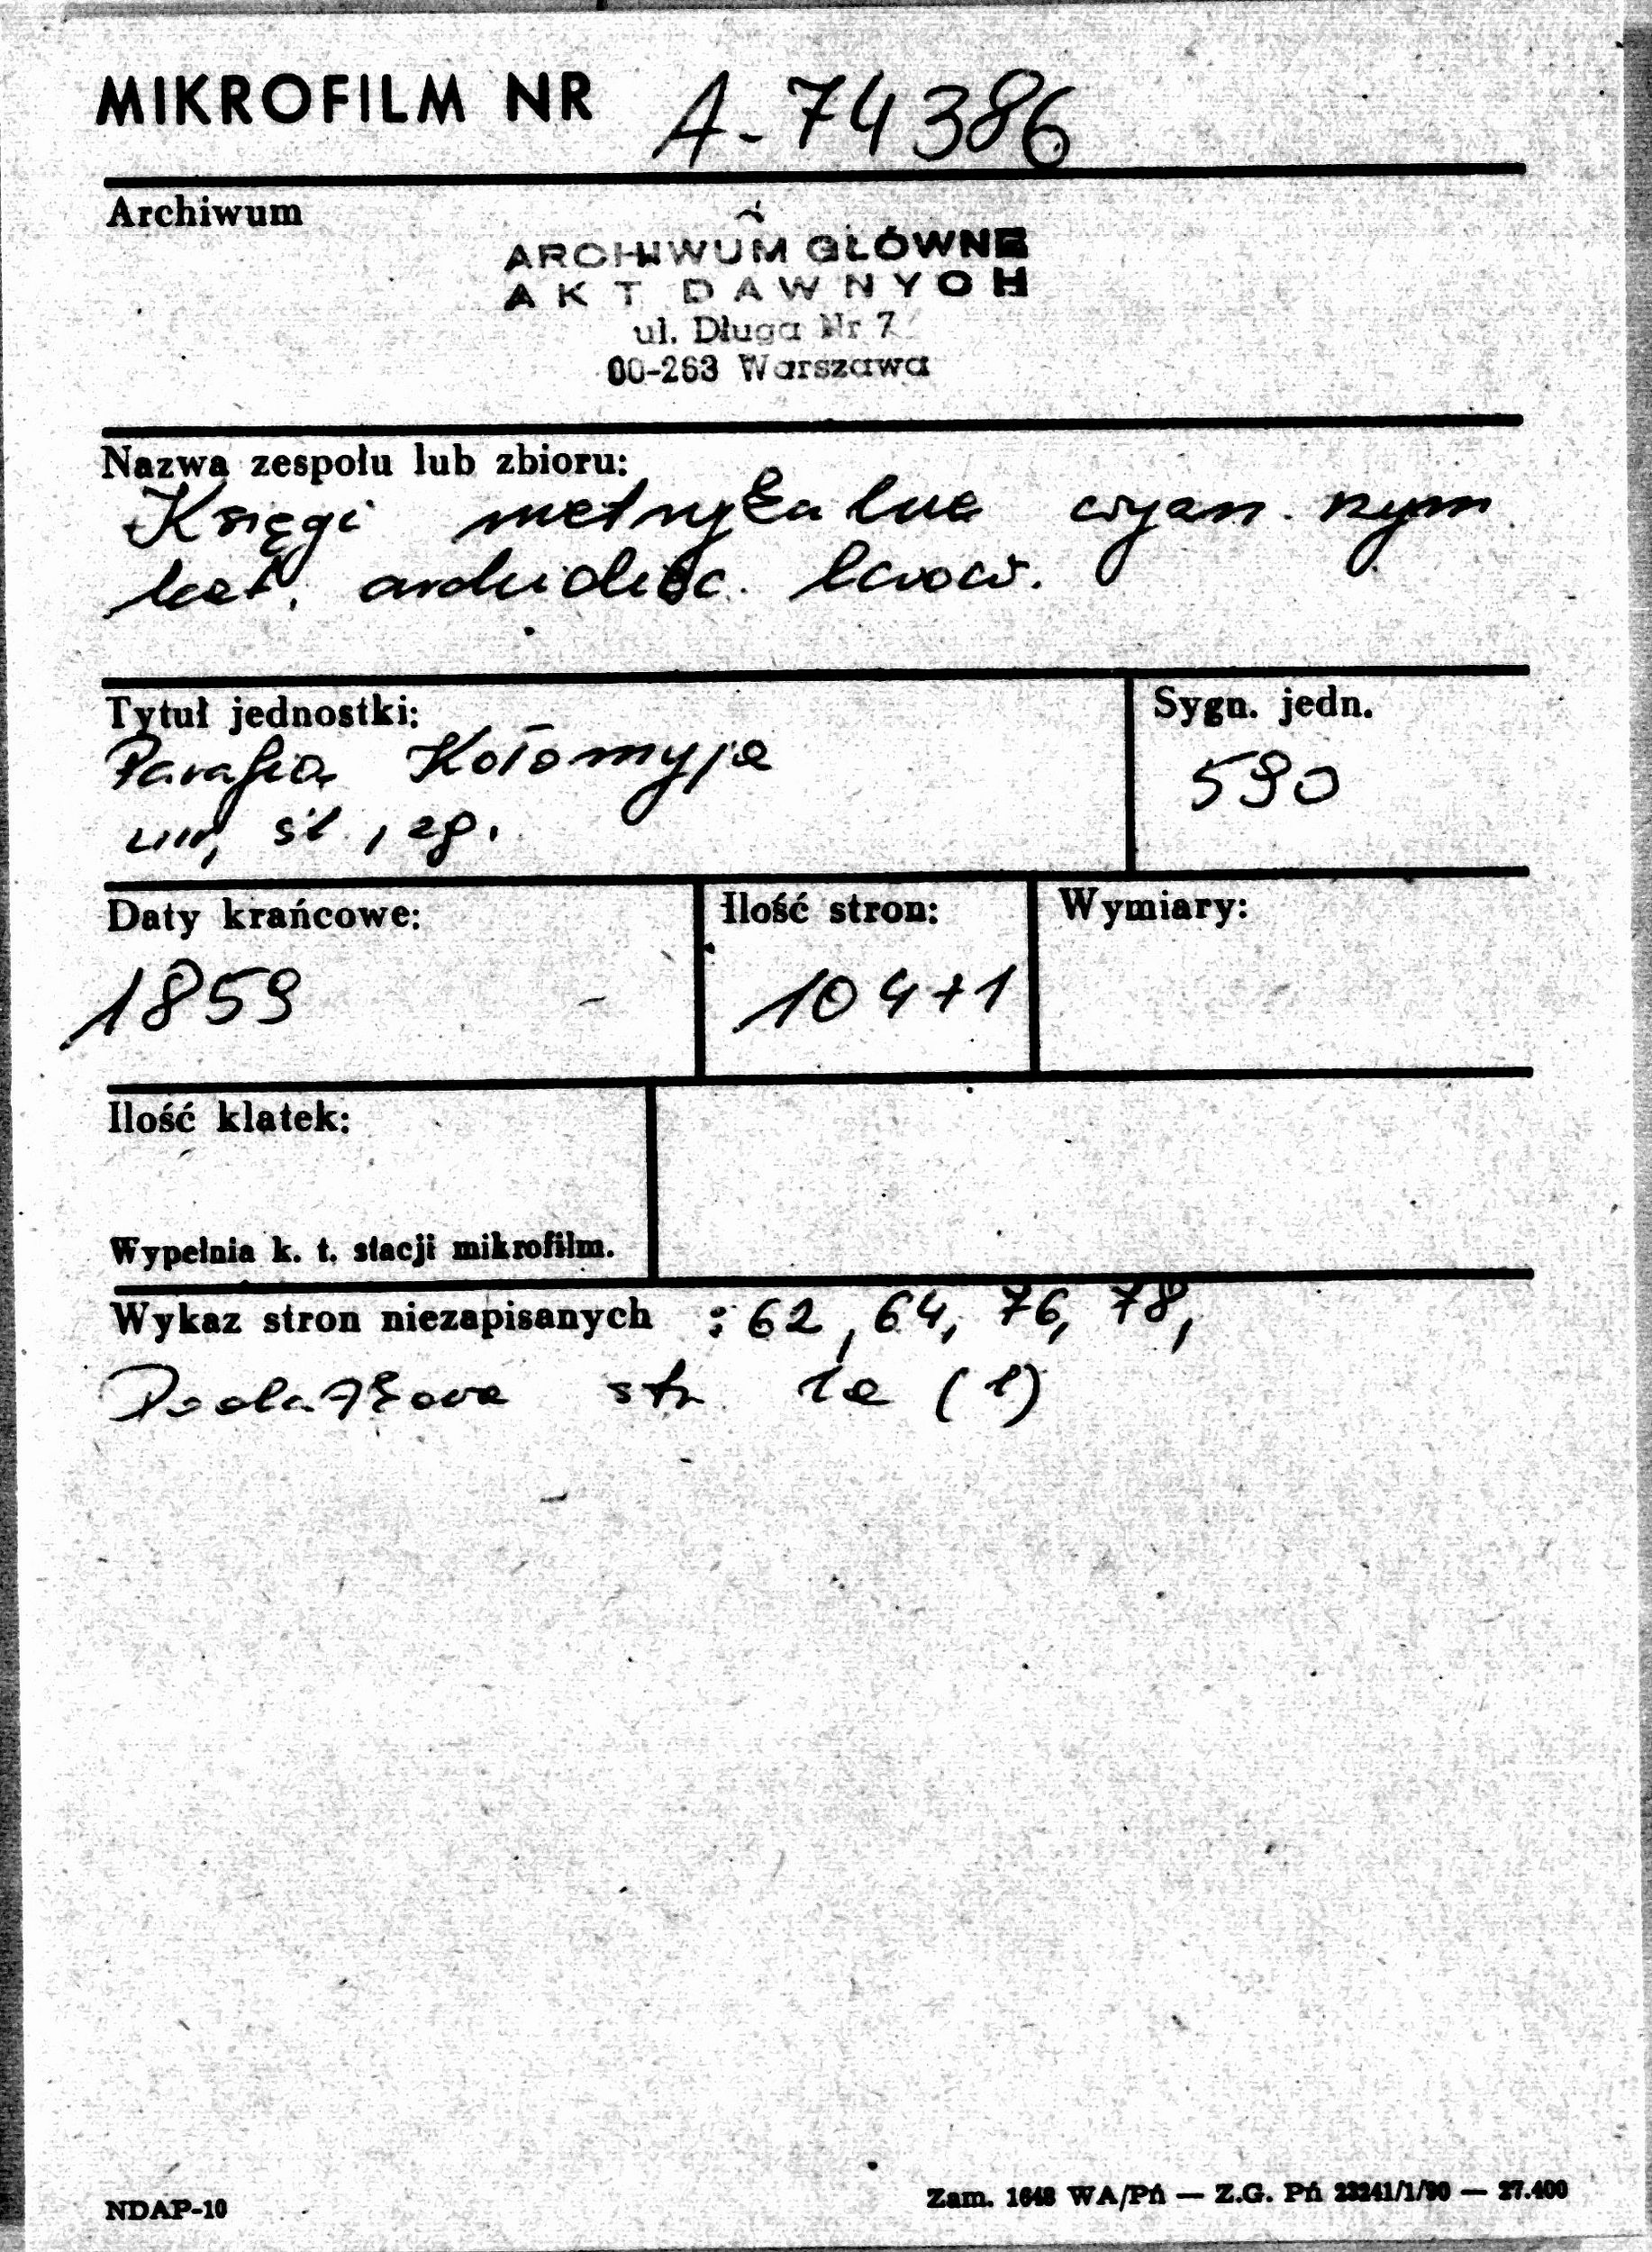 MIKROFILM NR A-74386
Archiwum
ARCHIWUM GŁÓWNE
AKT DAWNYCH
ul. Długa Nr 7
00-263 Warszawa
Nazwa zespołu lub zbioru:
Księgi metrykalne wyzn. rzym
kat. archidiec. lwow.
Tytuł jednostki:
Parafia Kołomyja
ur, śl., zg.
Sygn. jedn.
590
Daty krańcowe:
1859 -
Ilość stron:
104+1
Wymiary:
Ilość klatek:
Wypełnia k. t. stacji mikrofilm.
Wykaz stron niezapisanych : 62, 64, 76, 78,
Dodatkowe str. 1a (1)
NDAP-10
Zam. 1648 WA/Pń — Z.G. Pń 23241/1/90 — 27.400